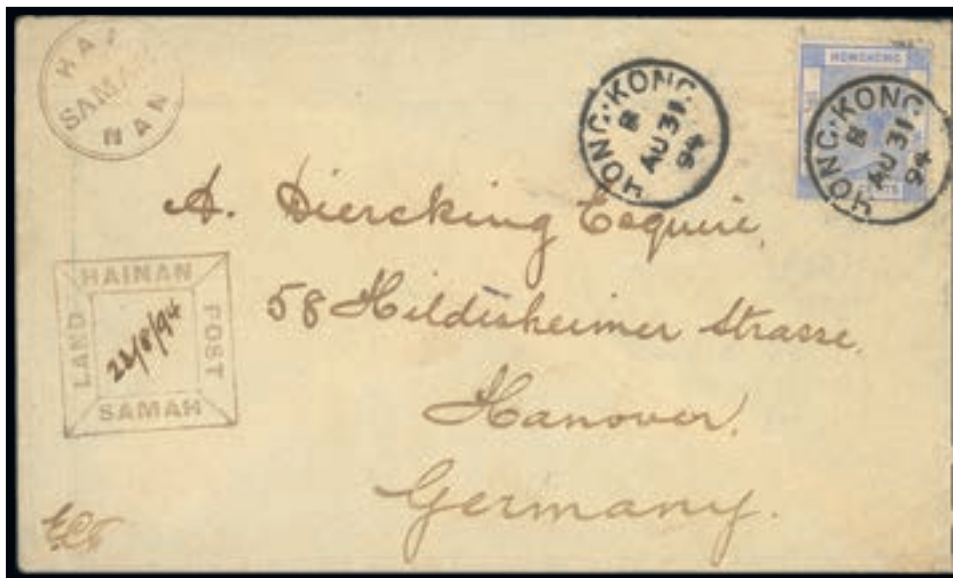 HAI
SAMAH
NAN
HONG·KONG
B
AU 31
94
HONGKONG
HONG·KONG
B
AU 31
94
CENTS
A. Diercking Esquire,
58 Hildisheimer Strasse,
Hanover,
Germany.
HAINAN
LAND
22/8/94
POST
SAMAH